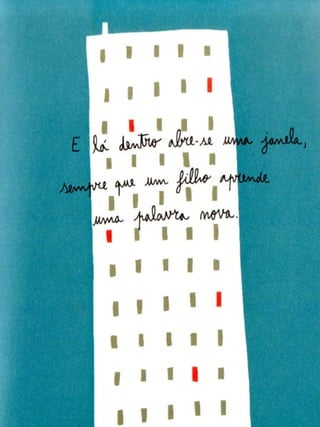 E lá dentro abre-se uma janela,
sempre que um filho aprende
uma palavra nova.